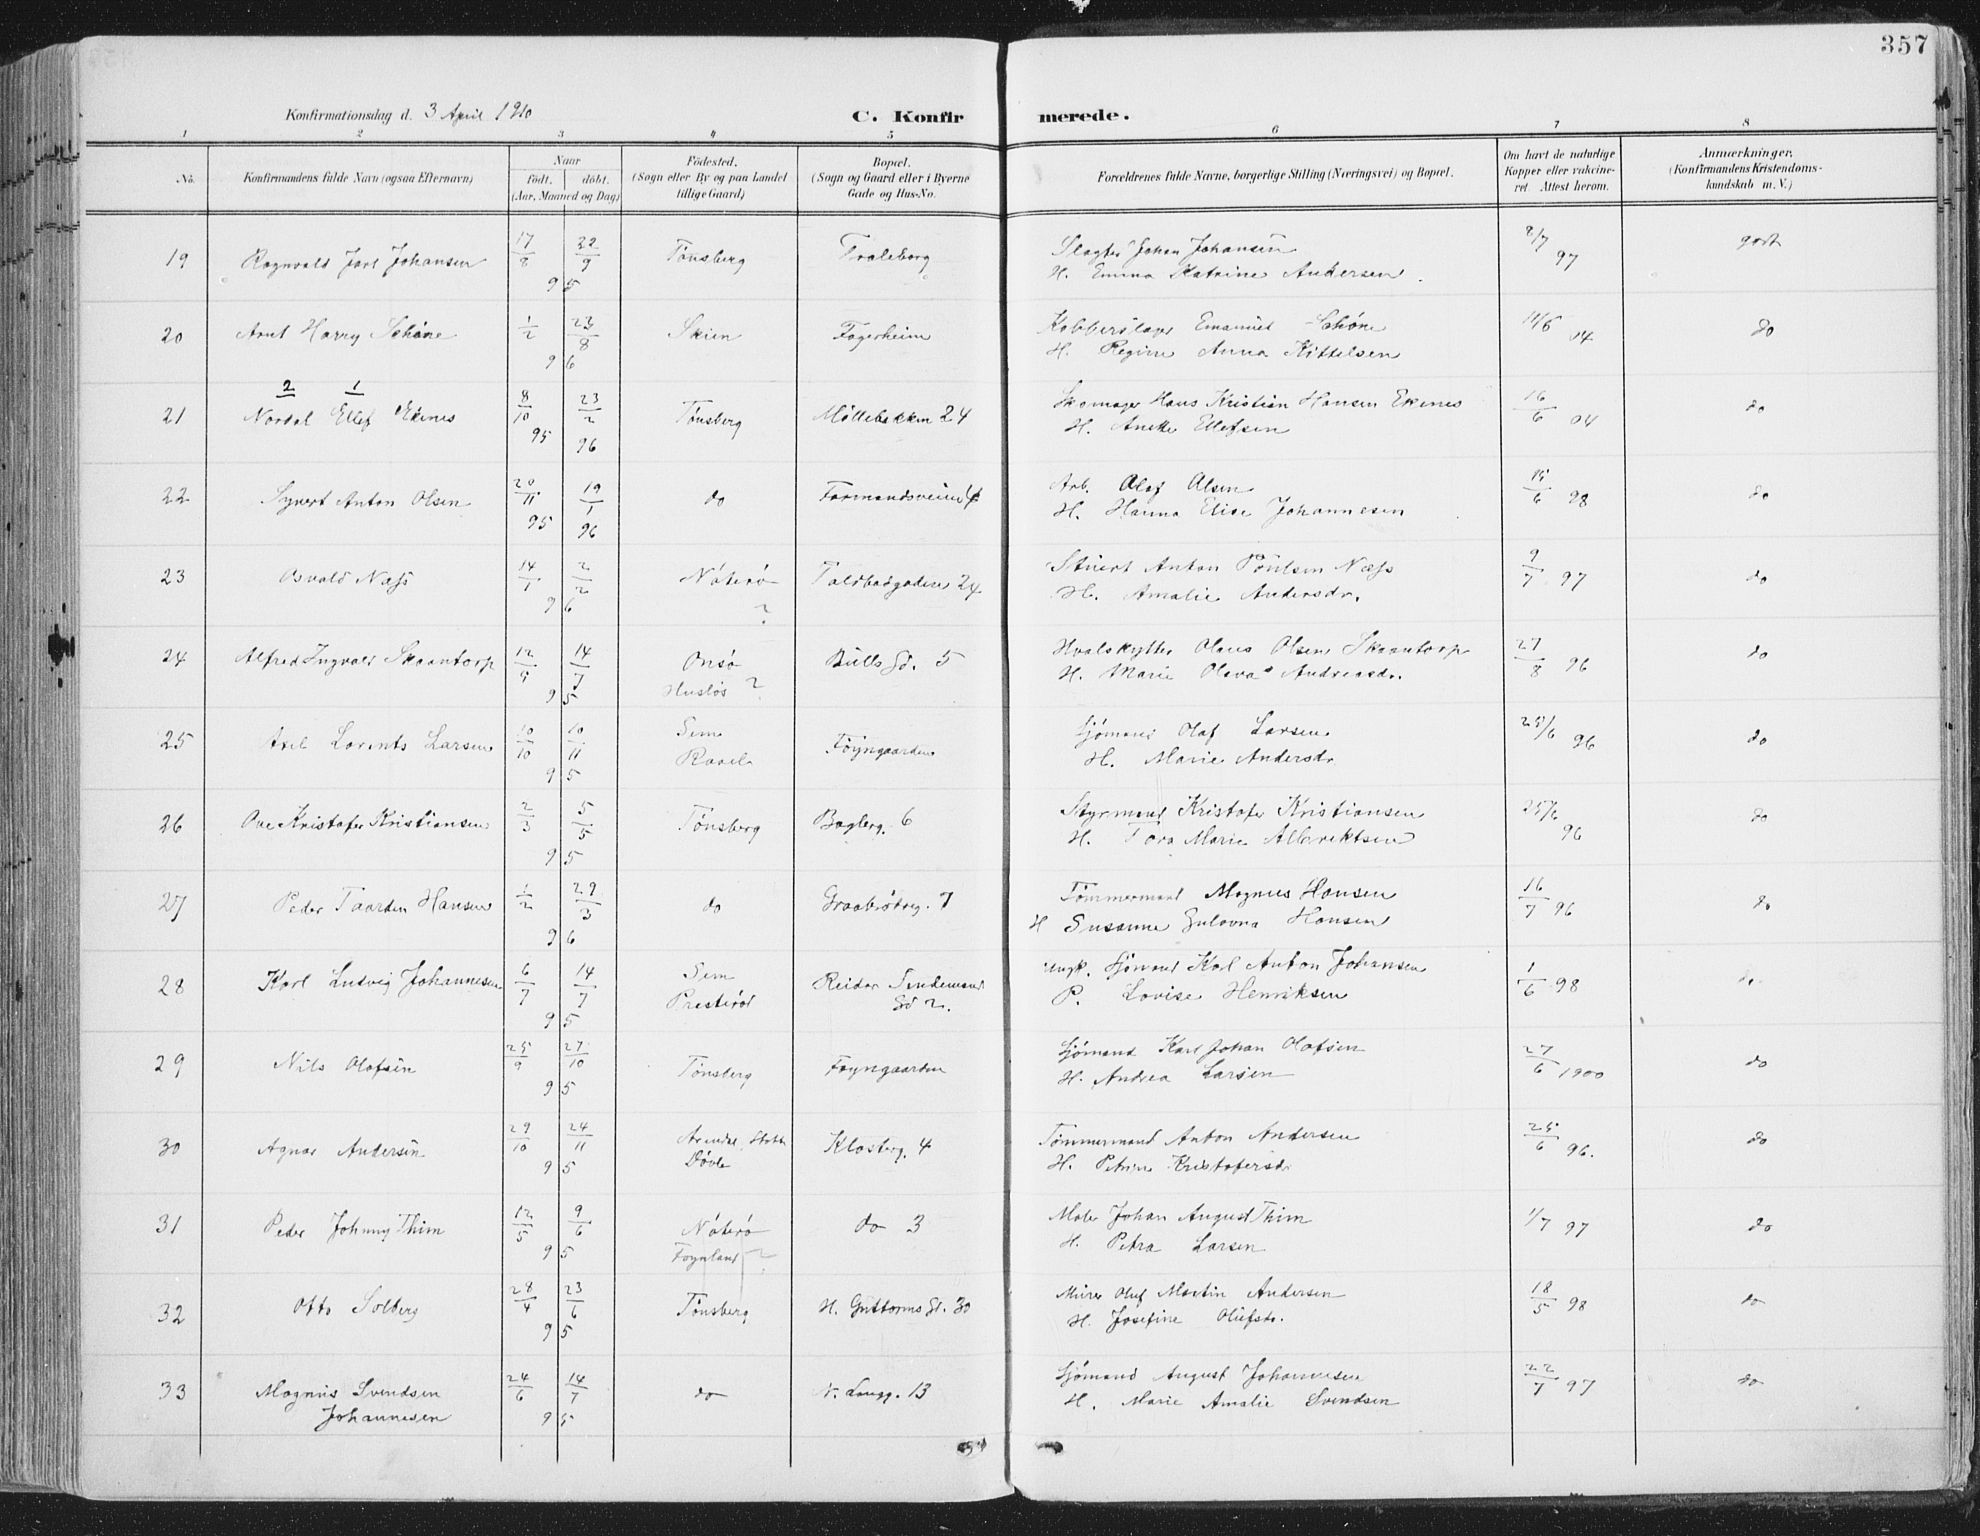 357
Konfirmationsdag d. 3 April 1910
C. Konfirmerede.
1 2 3 4 5 6 7 8
No.
Konfirmandens fulde Navn (ogsaa Efternavn)
Naar
født. døbt.
(Aar, Maaned og Dag)
Fødested.
(Sogn eller By og paa Landet
tillige Gaard)
Bopæl.
(Sogn og Gaard eller i Byerne
Gade og Hus-No.
Forældrenes fulde Navne, borgerlige Stilling (Næringsvei) og Bopæl.
Om havt de naturlige
Kopper eller vakcine-
ret. Attest herom.
Anmærkninger.
(Konfirmandens Kristendoms-
kundskab m. V.)
19 Ragnvald Jarl Johansen 17/8 22/9 95 Tønsberg Traleborg Slagter Johan Johansen 2/7 97 godt
H. Emma Katrine Andersen
20 Arnt Harry Schøne 1/2 23/8 96 Skien Fagerheim Kobberslager Emanuel Schøne 14/6 04 do
H. Regine Anna Kittelsen
2 1
21 Nordal Ellef Ekenes 8/10 95 23/2 96 Tønsberg Møllebakken 24 Skomager Hans Kristian Hansen Ekenes 16/6 04 do
H. Anette Ellefsen
22 Synert Anton Olsen 20/11 95 19/1 96 do Farmandsveien 4 Arb. Olaf Olsen 15/6 98 do
H. Hanna Elise Johannesen
23 Osvald Næss 14/1 2/2 96 Nøterø ? Toldbodgaden 24 Stuert Anton Poulsen Næss 9/7 97 do
H. Amalie Andersdr.
24 Alfred Ingvald Skaantorp 12/5 14/7 95 Onsø Bulls Gd. 5 Hvalskytter Olaus Olsen Skaantorp 27/8 96 do
Husløs ? H. Marie Olava Andreasdr.
25 Axel Lorents Larsen 10/10 10/11 95 Sem Føyngaarden Sjømand Olaf Larsen 25/6 96 do
Rael H. Marie Andersdr
26 Ove Kristofer Kristiansen 2/3 5/5 95 Tønsberg Baglerg. 6 Styrmand Kristofer Kristiansen 25/6 96 do
H. Tora Marie Albrektsen
27 Peder Taarden Hansen 1/2 29/3 96 do Graabrødreg. 7 Tømmermand Magnus Hansen 16/7 96 do
H Susanne Gulovna Hansen
28 Karl Ludvig Johannesen 6/7 14/7 95 Sem Reidar Sendemand Ungk. Sjømand Karl Anton Johansen 1/6 98 do.
Presterød Gd 2. P. Lovise Henriksen
29 Nils Olafsen 25/9 27/10 95 Tønsberg Foyngaarden Sjømand Karl Johan Olafsen 27/6 1900 do
H. Andrea Larsen
30 Agnar Andersen 29/10 24/11 95 Arendal Klosterg. 4 Tømmermand Anton Andersen 25/6 96. do
H. Petrine Kristofersdr
31 Peder Johnny Thim 12/5 9/6 95 Nøterø do 3 Maler Johan August Thim 1/7 97 do
Føynland ? H. Petra Larsen
32 Otto Solberg 28/4 23/6 95 Tønsberg H. Guttorms Gd. 30 Murer Oluf Martin Andersen 18/5 98 do
H. Josefine Olufsdr.
33 Magnus Svendsen 24/6 14/7 95 do N. Langg. 13 Sjømand August Johannesen 22/7 97 do
Johannesen H. Marie Amalie Svendsen